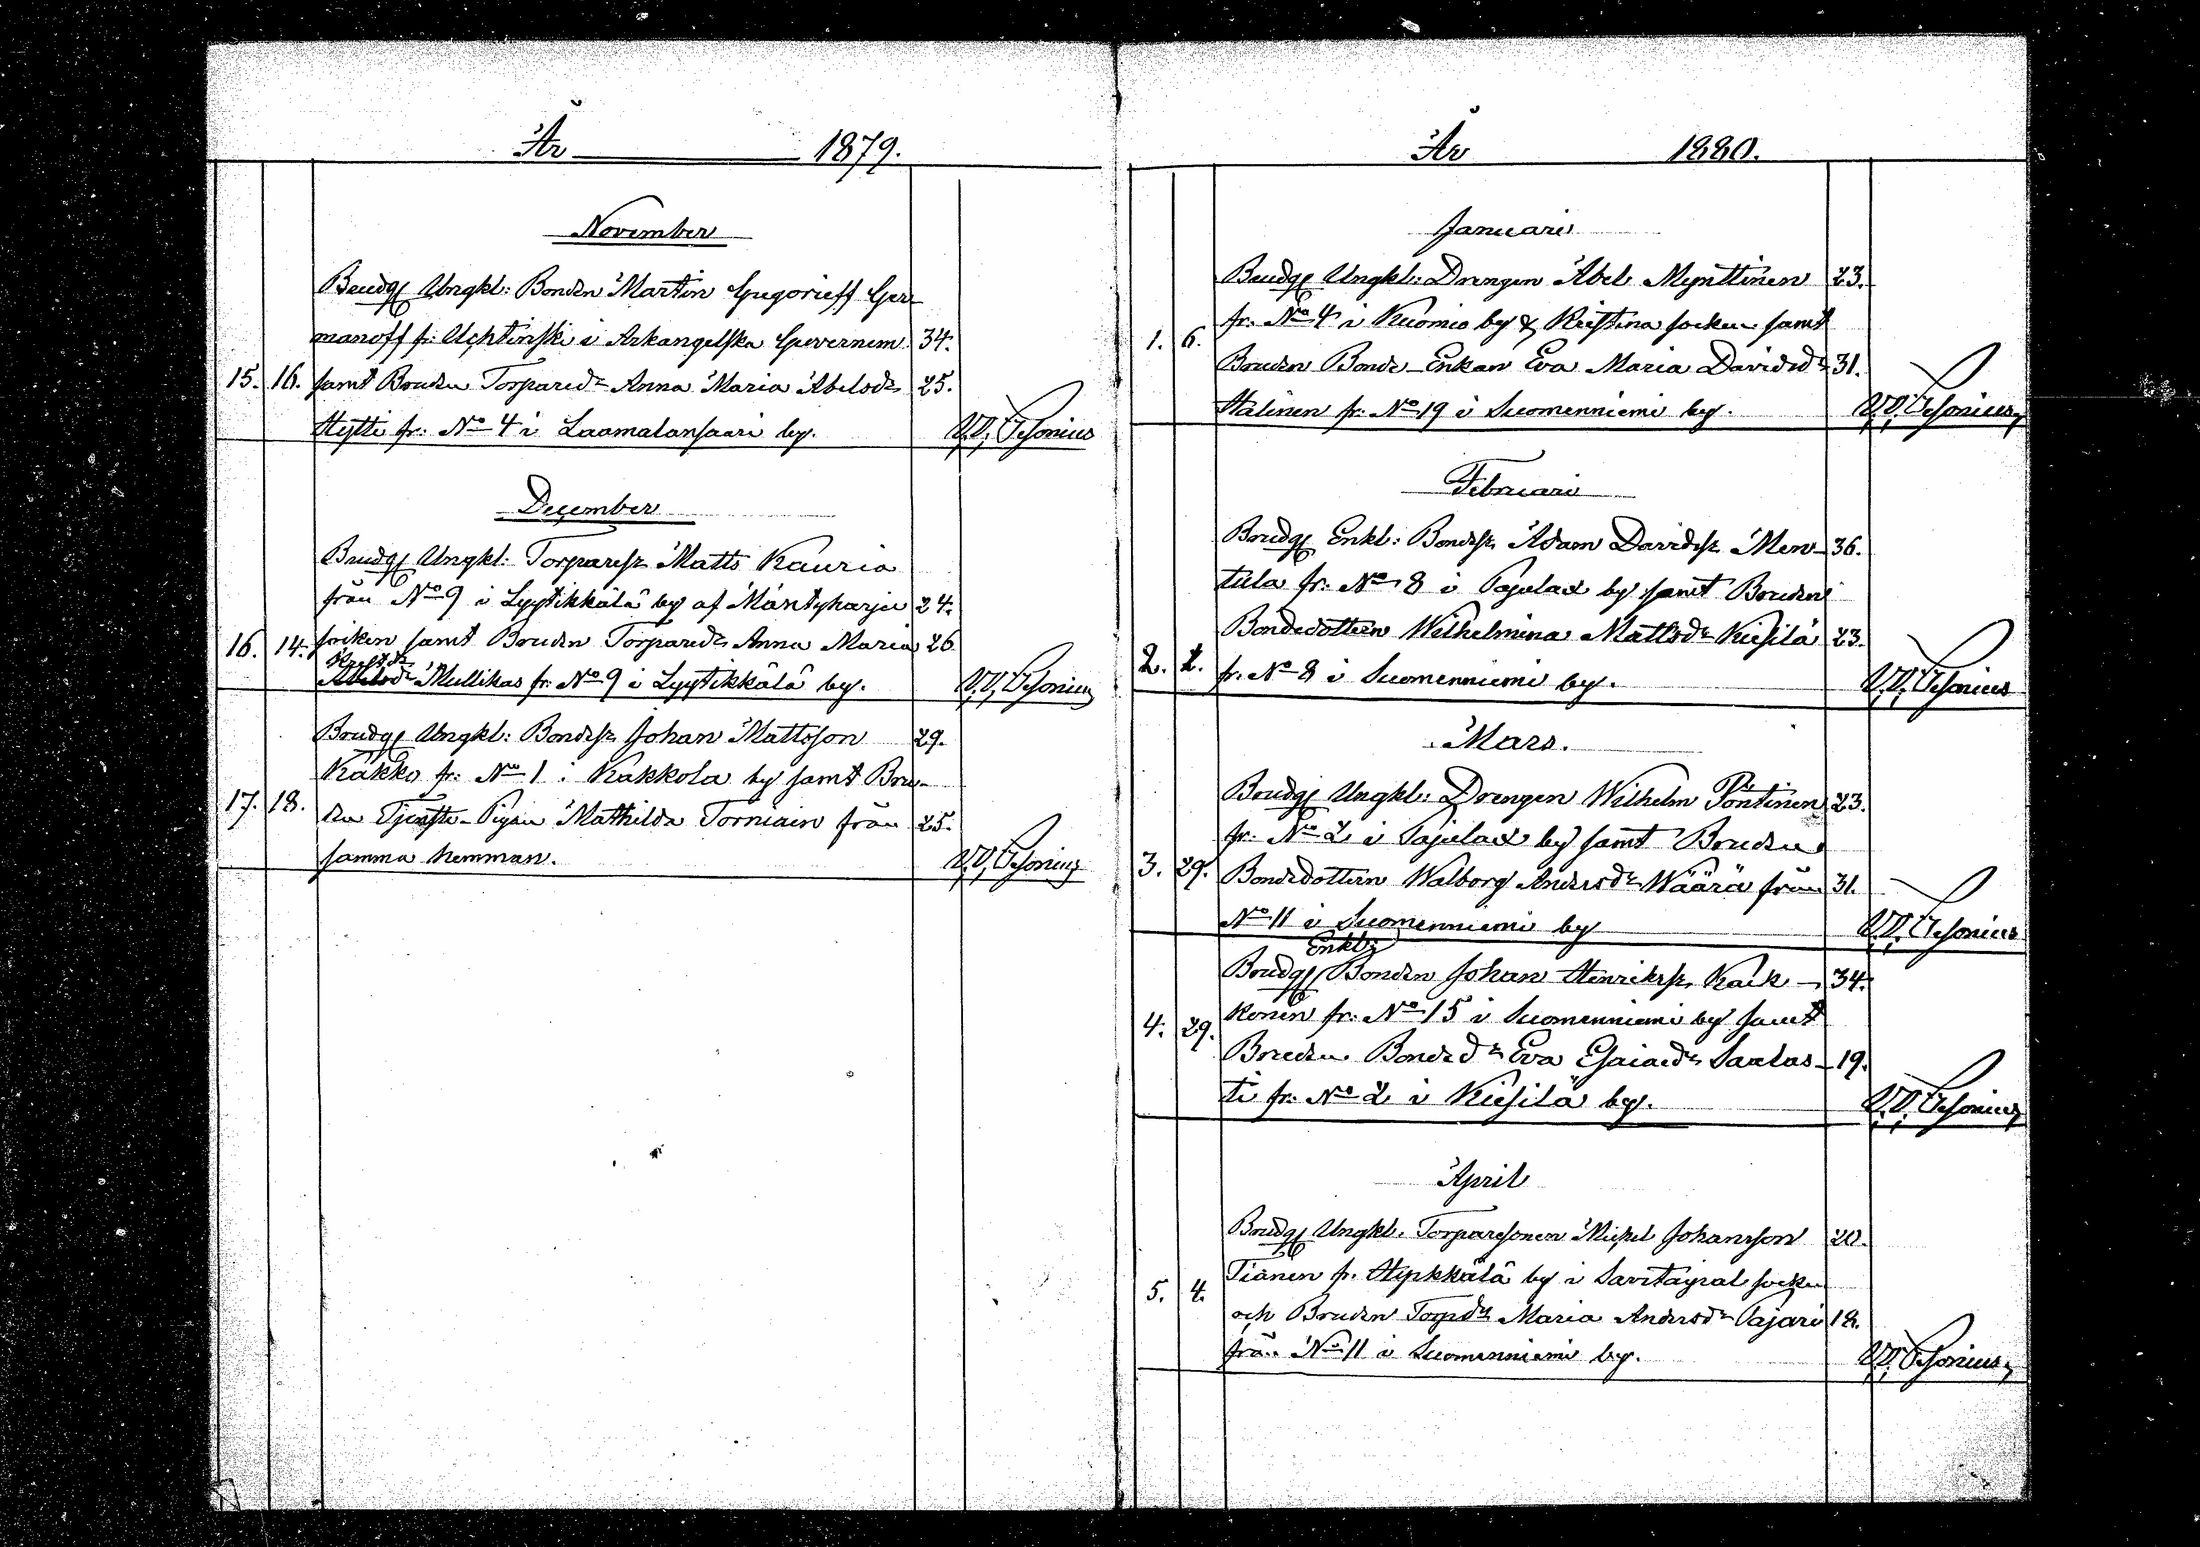 År 1879.
November
Brudg Ungkl: Bonden Martin Gregorieff Ger
manoff fr: Uchtinski i Arkangelska Guvernem. 34.
15. 16. samt Bruden Torpared:r Anna Maria Abelsd:r 25.
Hytti fr: No 4 i Laamalansaari by.
December
Brudg Ungkl: Torparesr Matts Kauria
från No 9 i Lyytikkälä by af Mäntyharju 24.
16. 14. socken samt Bruden Torpared:r Anna Maria 26
Mullikas fr: No 9 i Lyytikkälä by.
Brudg Ungkl: Bondesr Johan Mattsson 29.
Kakko fr: No 1 i Kakkola by samt Bru-
17. 18. den Tjenste-Pigan Mathilda Torniain från 25.
samma hemman.
År 1880.
Januari
Brudg Ungkl: Drengen Abel Mynttinen 23.
fr: No 4 i Kuomio by & Kristina socken samt
1. 6.
Bruden Bonde-Enkan Eva Maria Davidsd:r 31.
Halinen fr: No 19 i Suomenniemi by.
Februari
Brudg Enkl: Bondesr Adam Davidsr Men- 36.
tula fr: No 8 i Pajulax by samt Bruden
Bondedottern Wilhelmina Mattsd:r Kiesilä 23.
2. fr: No 8 i Suomenniemi by.
Mars.
Brudg Ungkl: Drengen Wilhelm Pöntinen 23.
fr: No 2 i Pajulax by samt Bruden
3. 29. Bondedottern Walborg Andersd:r Wäärä från 31.
No 11 i Suomenniemi by
Enkl:
Brudg Bonden Johan Henriksr Kaik- 34.
konen fr: No 15 i Suomenniemi by samt
4. 29.
Bruden Bonded:r Eva Esaiaed:r Saulas- 19.
ti fr: No 2 i Kiesilä by.
April
Brudg Ungkl. Torparesonen Michel Johansson 20.
Tiänen fr. Hepkkälä by i Savitaipal socken
5. 4.
och Bruden Torpd:r Maria Andersd:r Pajari 18.
från No 11 i Suomenniemi by.